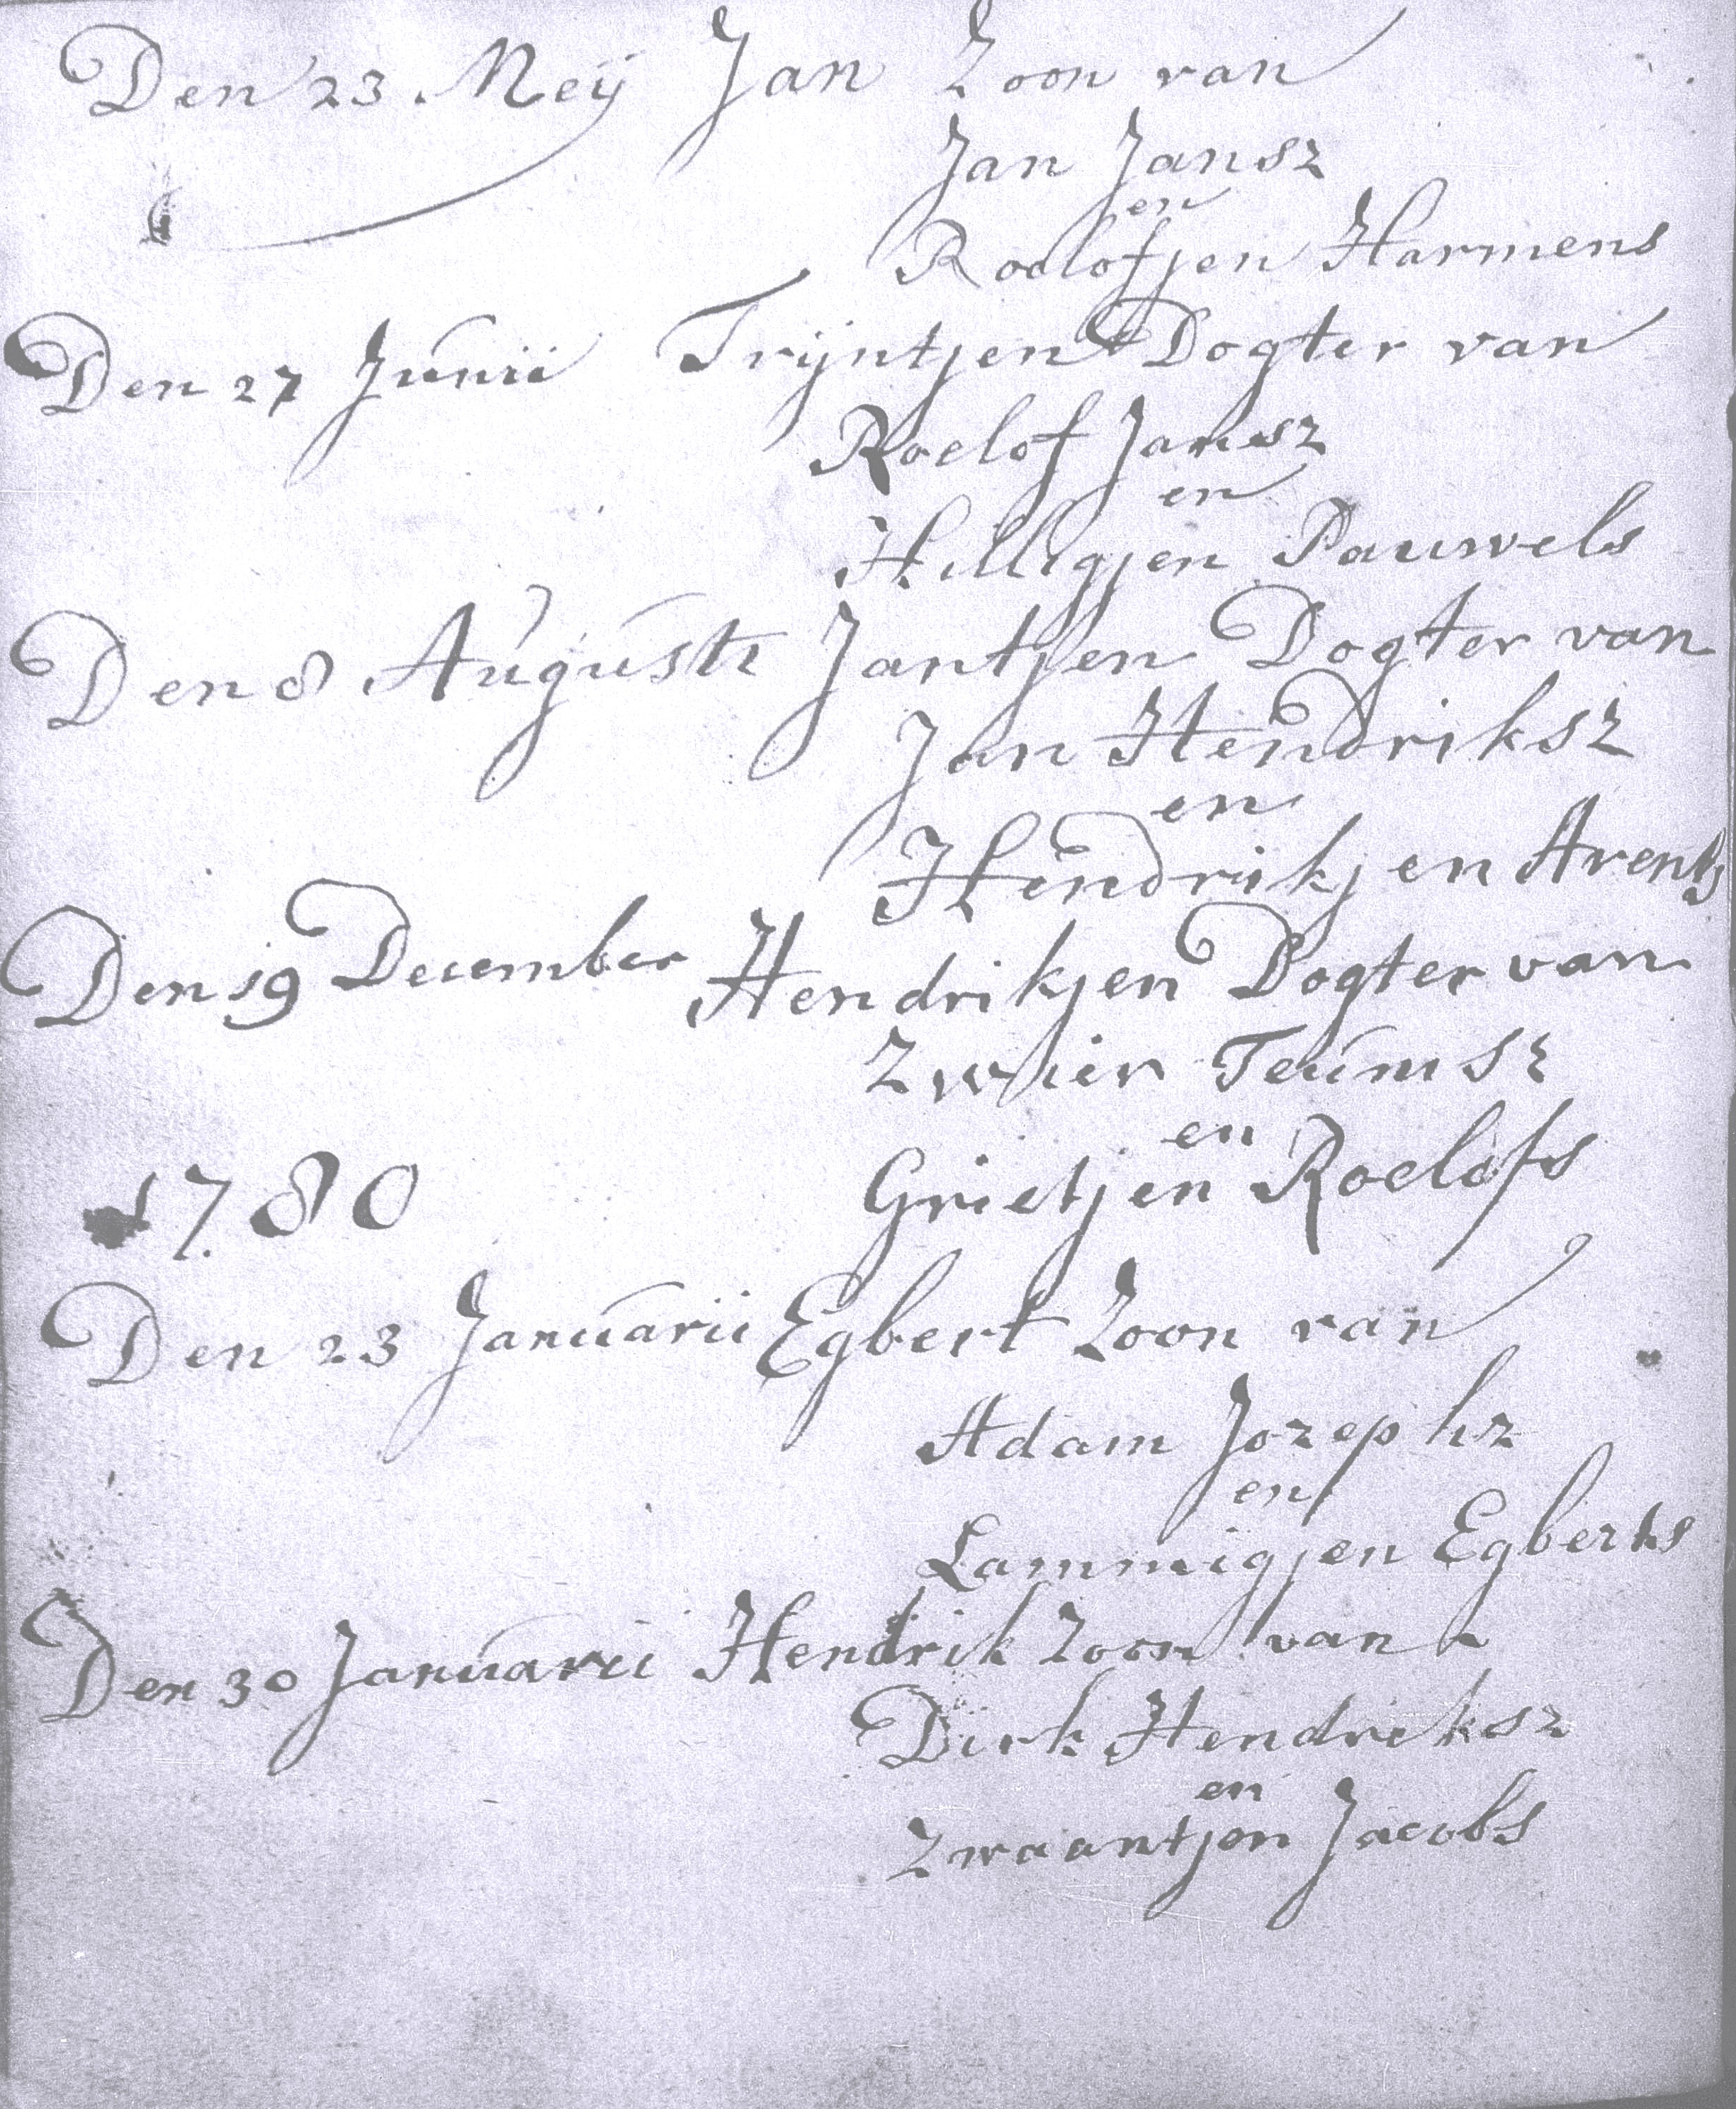 Den 23 Meij Jan Zoon van
Jan Jansz
en
Roelofjen Harmens
Den 27 Junii Trijntjen Dogter van
Roelof Jansz
en
Hilligjen Pauwels
Den 8 Augusti Jantjen Dogter van
Jan Hendriksz
en
Hendrikjen Arents
Den 19 December Hendrikjen Dogter van
Zwier Teunisz
en
Grietjen Roelofs
1780
Den 23 Januarii Egbert Zoon van
Adam Jozephz
en
Lammigjen Egberts
Den 30 Januarii Hendrik Zoon van
Dirk Hendriksz
en
Zwaantjen Jacobs